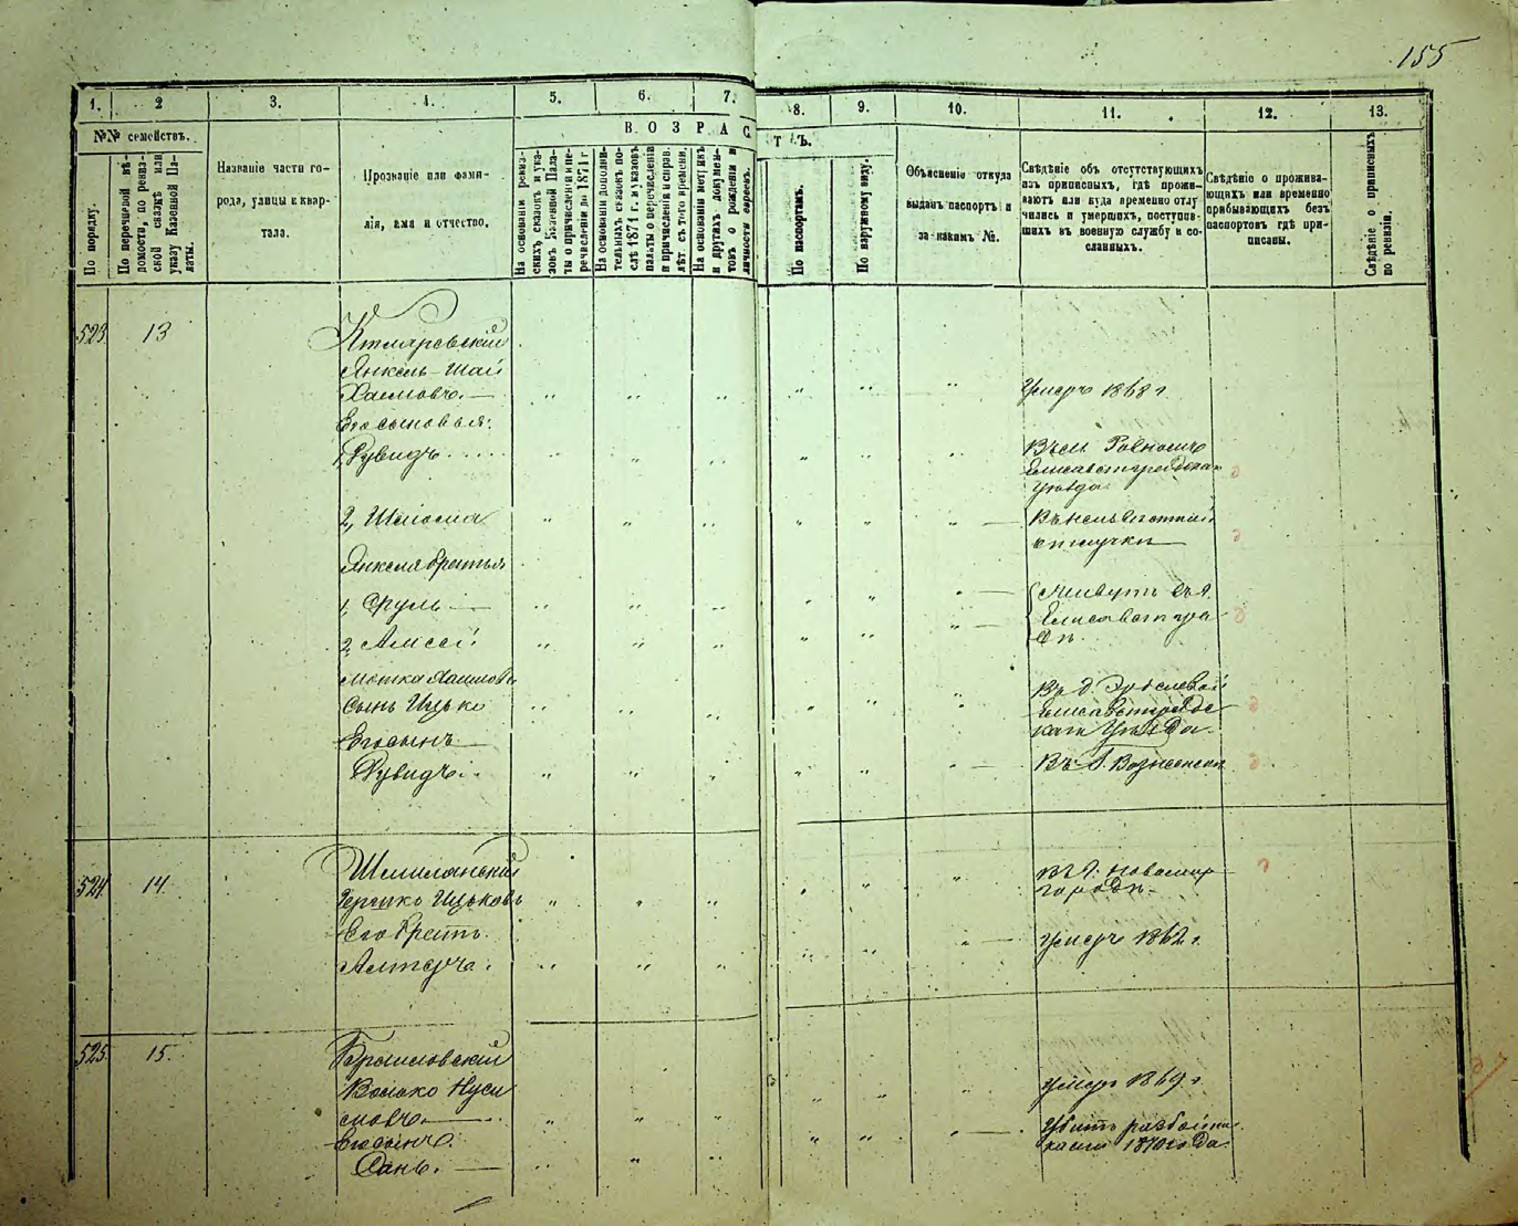 155
1. 2 3. 4. 5. 6. 7. 8. 9. 10. 11. 12. 13.
№№ семействъ.
По порядку.
По перечневой вѣ-
домости, по ревиз-
ской сказкѣ или
указу Казенной Па-
латы.
Названіе части го-
рода, улицы и квар-
тала.
Прозваніе или фами-
лія, имя и отчество.
ВОЗРАСТЪ.
На основаніи ревиз-
скихъ сказокъ и ука-
зовъ Казенной Пала-
ты о причисленіи и пе-
речисленіи до 1871 г.
На основаніи дополни-
тельныхъ сказокъ по-
слѣ 1871 г. и указовъ
палаты о перечисленіи
и причисленіи и справ.
лѣт. съ того времени.
На основаніи метрикъ
и другихъ докумен-
товъ о рожденіи и
личности евреевъ.
По паспортамъ.
По наружному виду.
Объясненіе откуда
выданъ паспортъ и
за какимъ №.
Свѣдѣніе объ отсутствующихъ
изъ приписныхъ, гдѣ прожи-
ваютъ или куда временно отлу
чились и умершихъ, поступив-
шихъ въ военную службу и со-
сланныхъ.
Свѣдѣніе о прожива-
ющихъ или временно
прибывающихъ безъ
паспортовъ гдѣ при-
писаны.
Свѣдѣніе о приписныхъ
по ревизіи.
523 13
Янкель-Шай
Хаимовъ. Умеръ 1868 г.
Его сыновья:
1, Рувидъ Въ м. Ровномъ
Елисаветградскаго
Уѣзда
2, Шлiома Въ неизвѣстной
отлучкѣ
Янкеля братья
1, Сруль Живутъ въ г.
Елисаветгра-
2, Алксей дѣ.
Мошка Хаимовъ
сынъ Ицько Въ д.
Елисаветградс
каго Уѣзда.
Его сынъ
Рувидъ Въ г. Вознесенскѣ
524 14.
Шмилянскій Въ г. Новомир
Гершко Ицьковъ городѣ
Его братъ
Алтеръ. Умеръ 1862 г.
525 15.
Браиловскій
Волько Нуси
мовъ Умеръ 1869 г.
Его сынъ. Убитъ разбойни
ками 1870 года.